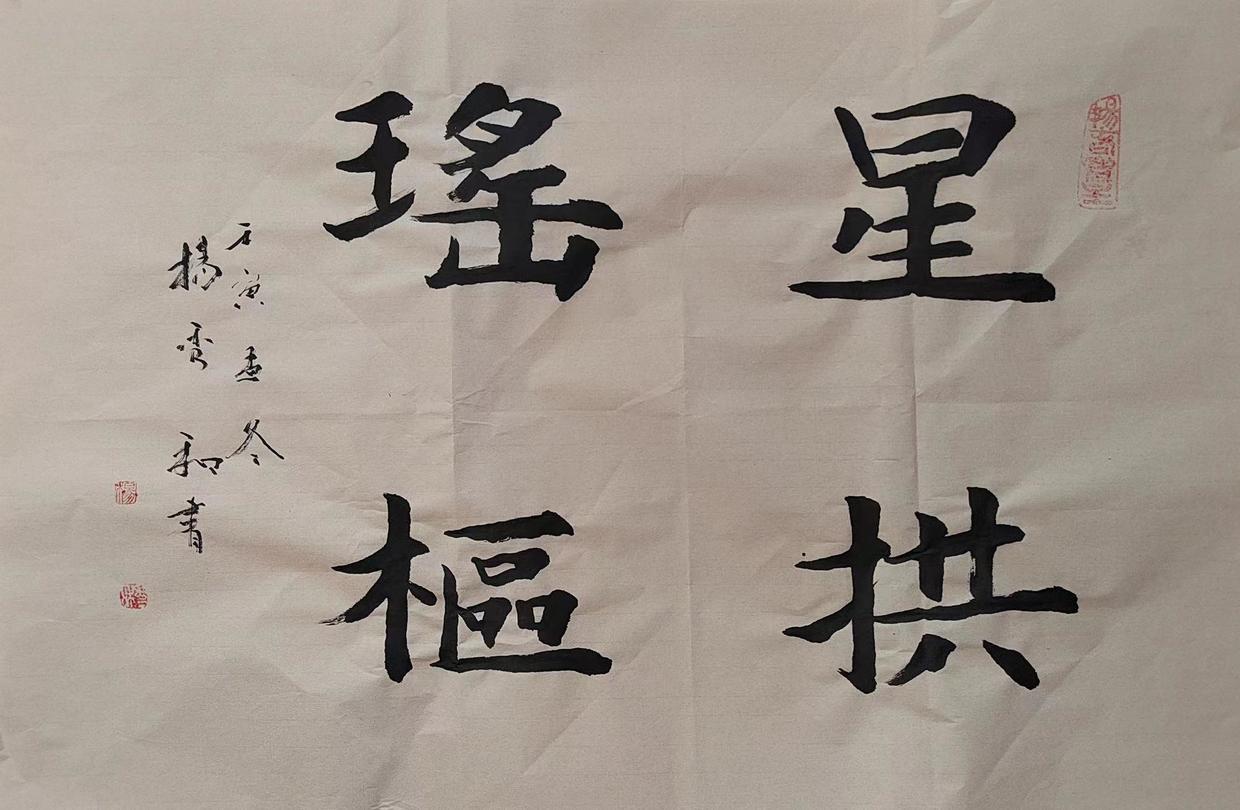 星拱
瑤樞
壬寅孟冬
楊雲和書